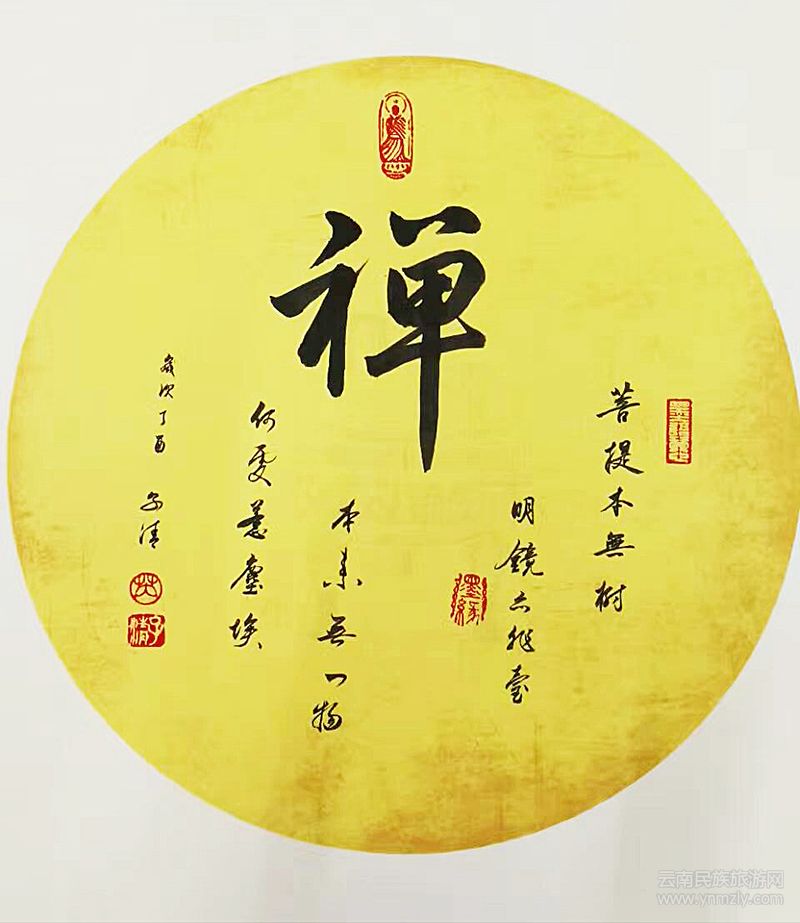 禅
菩提本無樹
明鏡亦非臺
本来無一物
何處惹塵埃
歲次丁酉
子清
墨緣
子清
云南民族旅游网
www.ynmzly.com